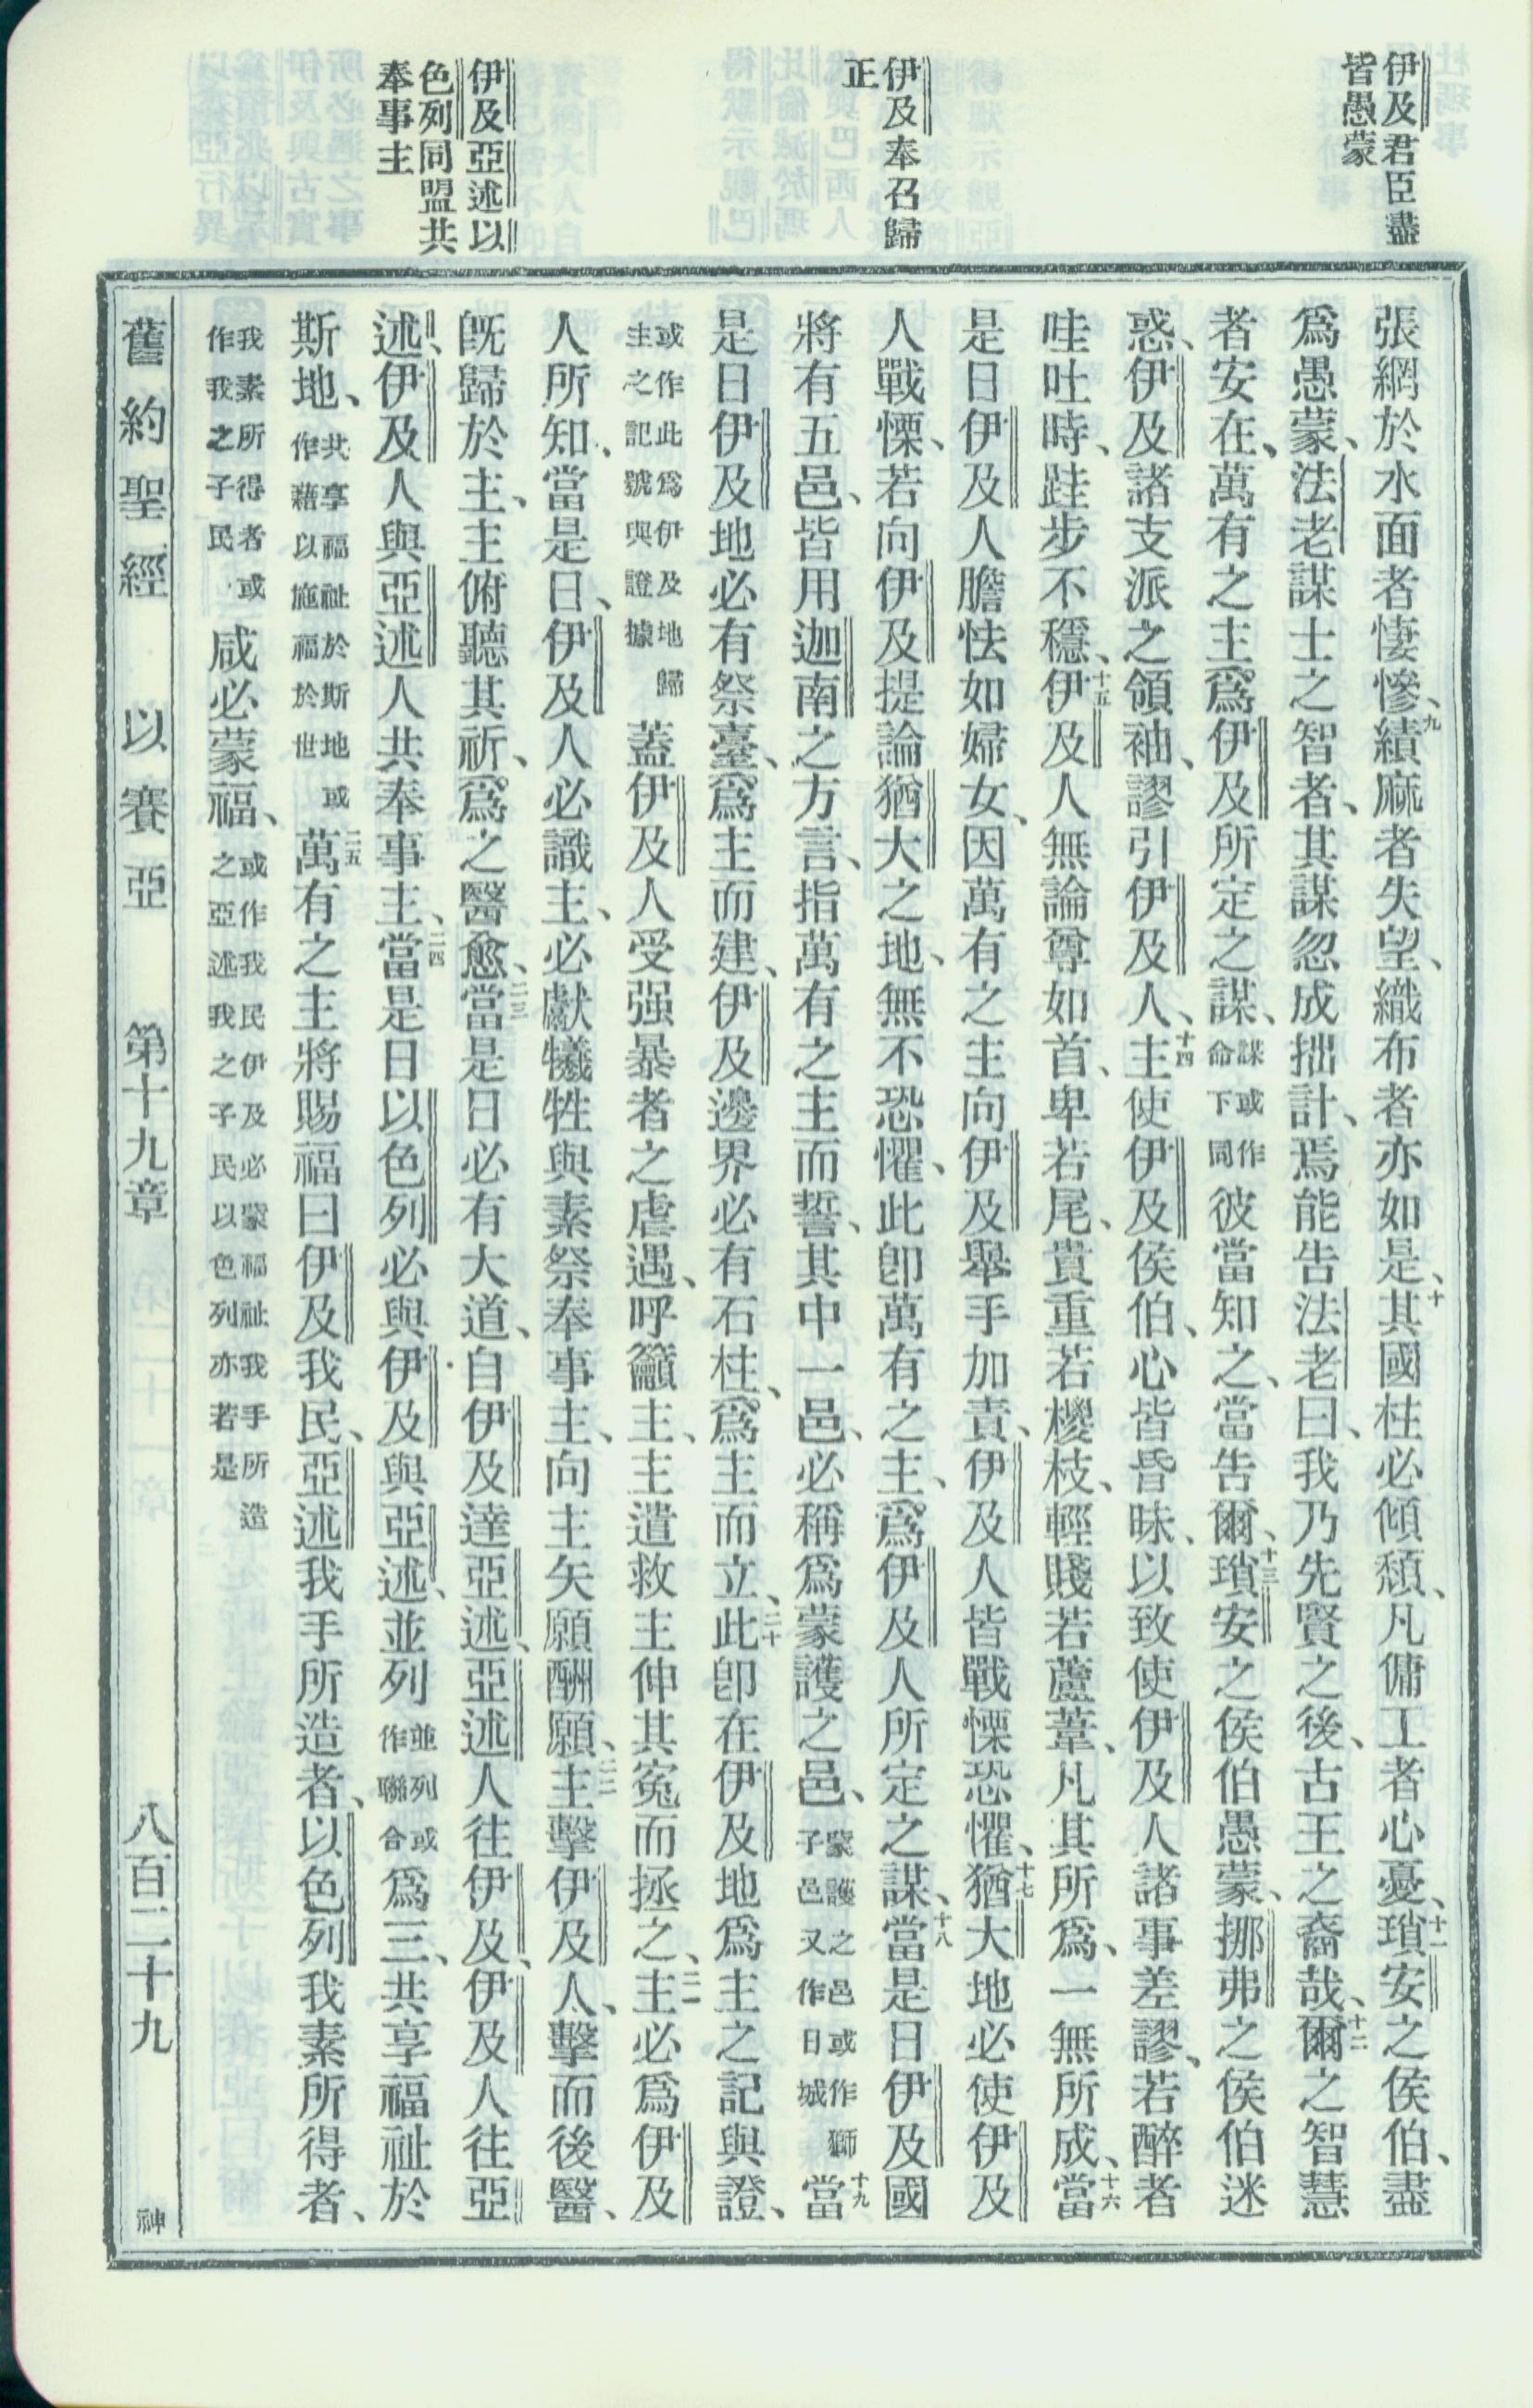 伊及君臣盡
皆愚蒙
伊及奉召歸
正
伊及亞述以
色列同盟共
奉事主
張網於水面者悽慘、九績麻者失望、織布者亦如是、十其國柱必傾頹、凡傭工者心憂、十一瑣安之侯伯、盡
爲愚蒙、法老謀士之智者、其謀忽成拙計、焉能告法老曰、我乃先賢之後、古王之裔哉、十二爾之智慧
者安在、萬有之主爲伊及所定之謀、謀或作命下同彼當知之、當告爾、十三瑣安之侯伯愚蒙、挪弗之侯伯迷
惑、伊及諸支派之領袖、謬引伊及人、十四主使伊及侯伯、心皆昏昧、以致使伊及人諸事差謬、若醉者
哇吐時、跬步不穩、十五伊及人無論尊如首、卑若尾、貴重若椶枝、輕賤若蘆葦、凡其所爲、一無所成、十六當
是日伊及人膽怯如婦女、因萬有之主向伊及舉手加責、伊及人皆戰慄恐懼、十七猶大地必使伊及
人戰慄、若向伊及提論猶大之地、無不恐懼、此卽萬有之主、爲伊及人所定之謀、十八當是日伊及國
將有五邑、皆用迦南之方言、指萬有之主而誓、其中一邑、必稱爲蒙護之邑、蒙護之邑或作獅子邑又作日城十九當
是日伊及地必有祭臺、爲主而建、伊及邊界必有石柱、爲主而立、二十此卽在伊及地爲主之記與證、
或作此爲伊及地歸主之記號與證據蓋伊及人受强暴者之虐遇、呼籲主、主遣救主伸其寃而拯之、二一主必爲伊及
人所知、當是日、伊及人必識主、必獻犧牲與素祭奉事主、向主矢願酬願、二二主擊伊及人、擊而後醫、
旣歸於主、主俯聽其祈、爲之醫愈、二三當是日必有大道、自伊及達亞述、亞述人往伊及、伊及人往亞
述、伊及人與亞述人共奉事主、二四當是日以色列必與伊及與亞述、並列並列或作聯合爲三、共享福祉於
斯地、共享福祉於斯地或作藉以施福於世二五萬有之主將賜福曰伊及我民、亞述我手所造者、以色列我素所得者、
我素所得者或作我之子民咸必蒙福、或作我民伊及必蒙福祉我手所造之亞述我之子民以色列亦若是
舊約聖經 以賽亞 第十九章 八百二十九 神